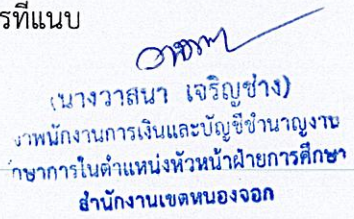 รที่แนบ
(นางวาสนา เจริญช่าง)
จาพนักงานการเงินและบัญชีชำนาญงาน
กษาการในตำแหน่งหัวหน้าฝ่ายการศึกษา
สำนักงานเขตหนองจอก